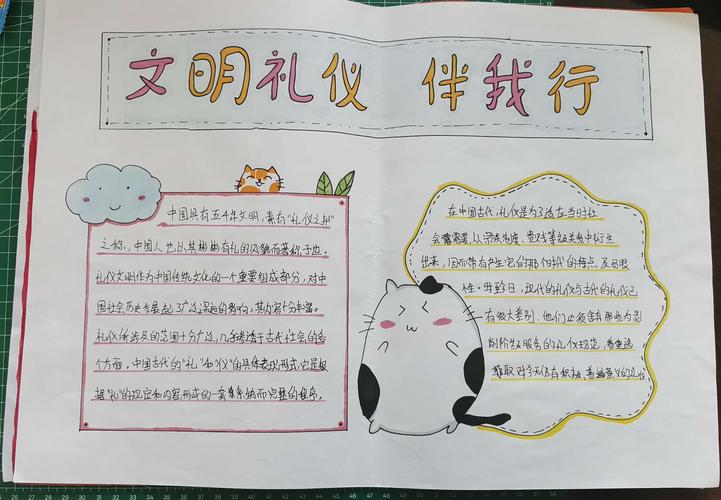 文明礼仪 伴我行
中国具有五千年文明，素有“礼仪之邦”
之称，中国人也以其彬彬有礼的风貌而著称于世。
礼仪文明作为中国传统文化的一个重要组成部分，对中
国社会历史发展起了广泛深远的影响，其内容十分丰富。
礼仪所涉及的范围十分广泛，几乎渗透于古代社会的各
个方面，中国古代的“礼”和“仪”的具体表现形式，它是根
据“礼”的规定和内容形成的一套系统而完整的程序。
在中国古代，礼仪是为了适应当时社
会需要，从宗法制度、贵贱等级关系中衍生
出来，因而带有产生它的那个时代的特点及局限
性。时至今日，现代的礼仪与古代的礼仪已
有很大差别，他们必须舍弃那些为剥
削阶级服务的礼仪规范，着重选
择取对今天仍有积极、普遍意义的礼仪